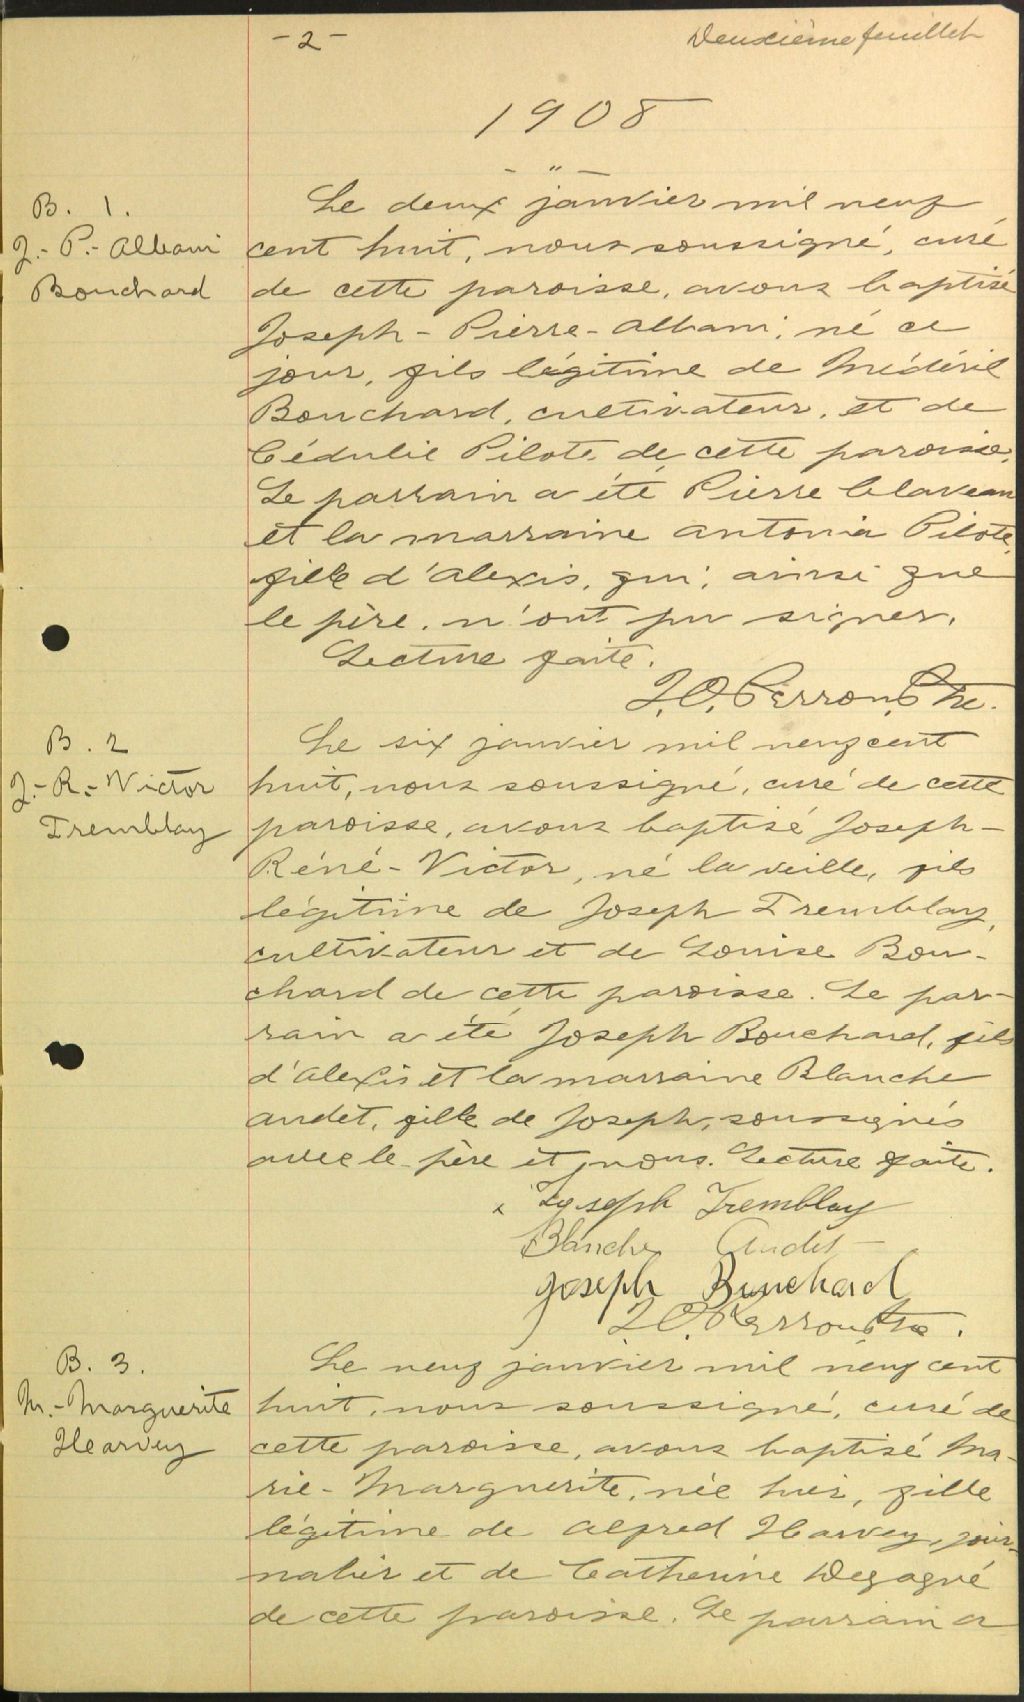 -2-
Deuxième feuillet
1908
B. 1.
J.-P.-Albani
Bouchard
Le deux janvier mil neuf
cent huit, nous soussigné, curé
de cette paroisse, avons baptisé
Joseph-Pierre-Albani, né ce
jour, fils légitime de Médéril
Bouchard, cultivateur, et de
Cédulie Pilote, de cette paroisse.
Le parrain a été Pierre Claveau
et la marraine Antonia Pilote,
fille d'Alexis, qui, ainsi que
le père, n'ont pu signer.
Lecture faite.
J.O. Perron, Ptre.
B. 2
J.-R.-Victor
Tremblay
Le six janvier mil neuf cent
huit, nous soussigné, curé de cette
paroisse, avons baptisé Joseph-
Réné-Victor, né la veille, fils
légitime de Joseph Tremblay,
cultivateur et de Louise Bou-
chard de cette paroisse. Le par-
rain a été Joseph Bouchard, fils
d'Alexis et la marraine Blanche
Audet, fille de Joseph, soussignés
avec le père et nous. Lecture faite.
x Joseph Tremblay
Blanche Audet
Joseph Bouchard
J.O. Perron Ptre.
B. 3.
M.-Marguerite
Hearvey
Le neuf janvier mil neuf cent
huit, nous soussigné, curé de
cette paroisse, avons baptisé Ma-
rie-Marguerite, née hier, fille
légitime de Alfred Harvey, jour-
nalier et de Catherine Degagné
de cette paroisse. Le parrain a